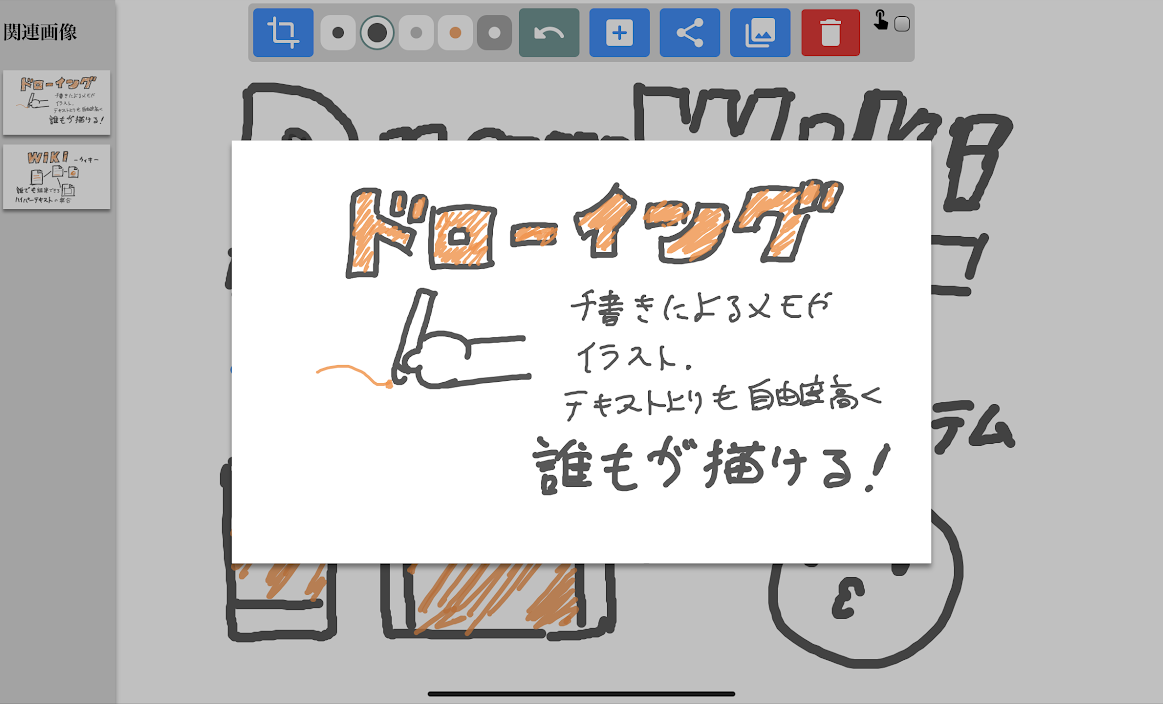 関連画像
ドローイング
手書きによるメモや
イラスト.
テキストよりも自由度高く
誰もが描ける!
WiKi -ウィキ-
誰でも編集できる
ハイパーテキストの集合
ドローイング
手書きによるメモや
イラスト.
テキストよりも自由度高く
誰もが描ける!
テム